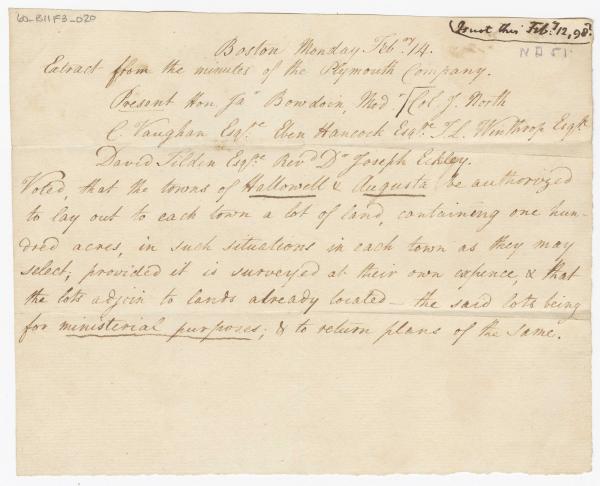 60-B11F3-020
(Is not this Feby 12, 98?
N D 51
Boston Monday Feby 14.
Extract from the minutes of the Plymouth Company.
Present Hon. Jas Bowdoin, Modr / Col. J. North
C. Vaughan Esqre Eben Hancock Esqre T. L. Winthrop Esqre
David Tilden Esqre Revd Dr Joseph Eckley.
Voted, that the towns of Hallowell & Augusta be authorized
to lay out to each town a lot of land, containing one hun-
dred acres, in such situations in each town as they may
select; provided it is surveyed at their own expence, & that
the lots adjoin to lands already located - the said lots being
for ministerial purposes; & to return plans of the same.